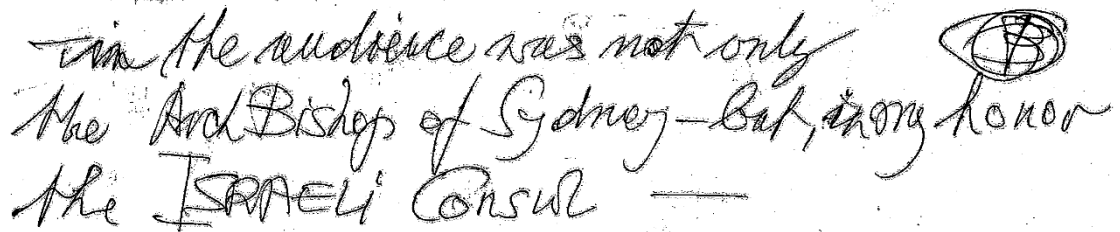 in the audience was not only
the ArchBishop of Sydney - but, in my honor
the ISRAELi Consul —